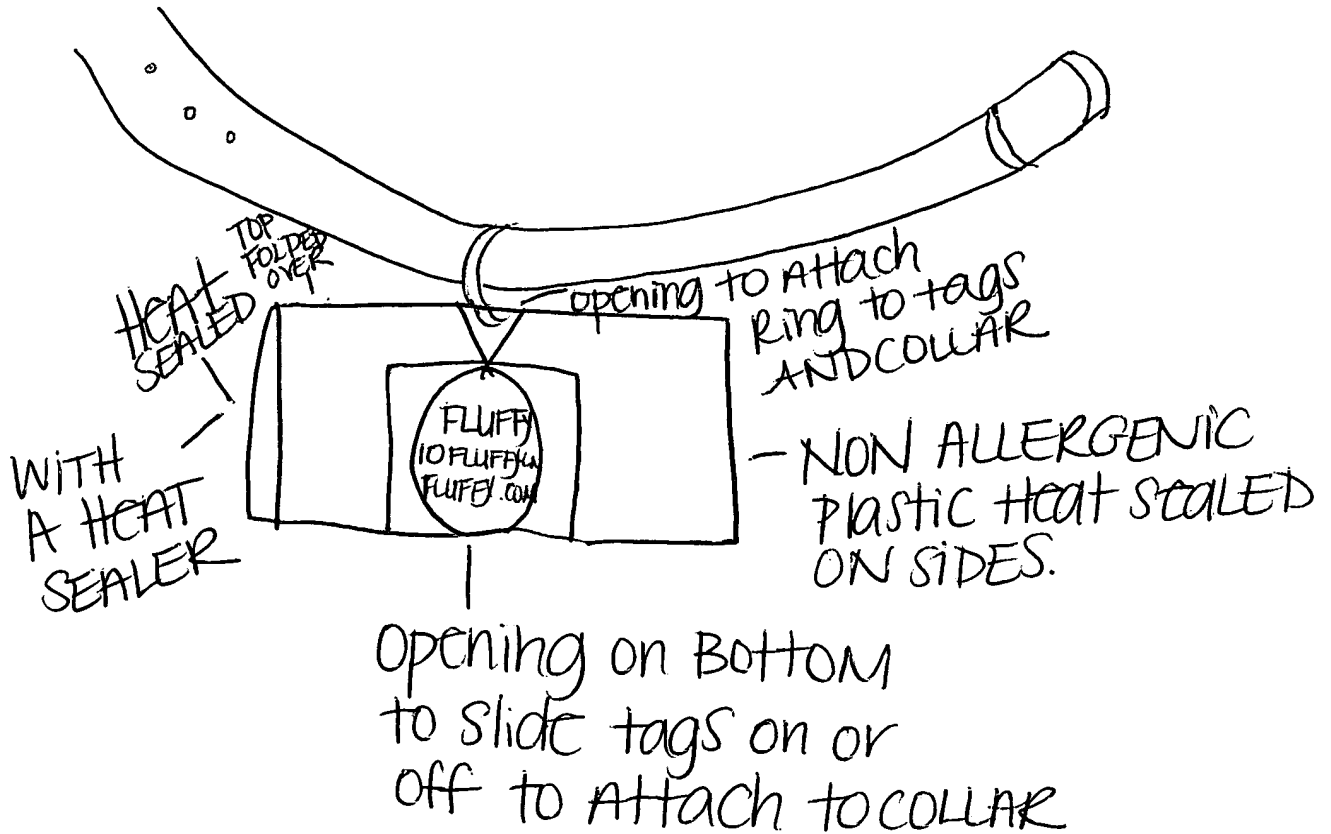 TOP
FOLDED
OVER
HEAT
SEALED
opening to Attach
Ring to tags
AND COLLAR
FLUFFY
10 FLUFFY LN
FLUFFY.COM
WITH
A HEAT
SEALER
NON ALLERGENIC
plastic Heat SEALED
ON SiDES.
Opening on Bottom
to slide tags on or
off to Attach to COLLAR